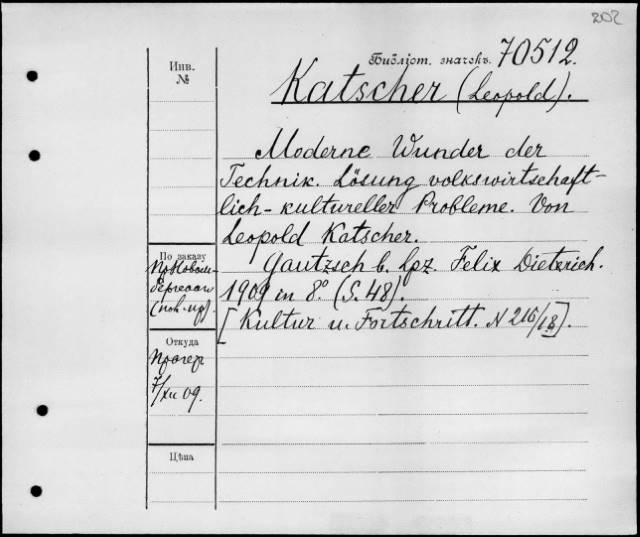 202
Библіот. значекъ. 70512.
Инв.
№
Katscher (Leopold).
Moderne Wunder der
Technik. Lösung volkswirtschaft-
lich-kultureller Probleme. Von
Leopold Katscher.
Gautzsch b. Lpz. Felix Dietrich.
1909 in 8° (S. 48).
[Kultur u. Fortschritt. N 216/18].
По заказу
Откуда
7/XII 09.
Цѣна